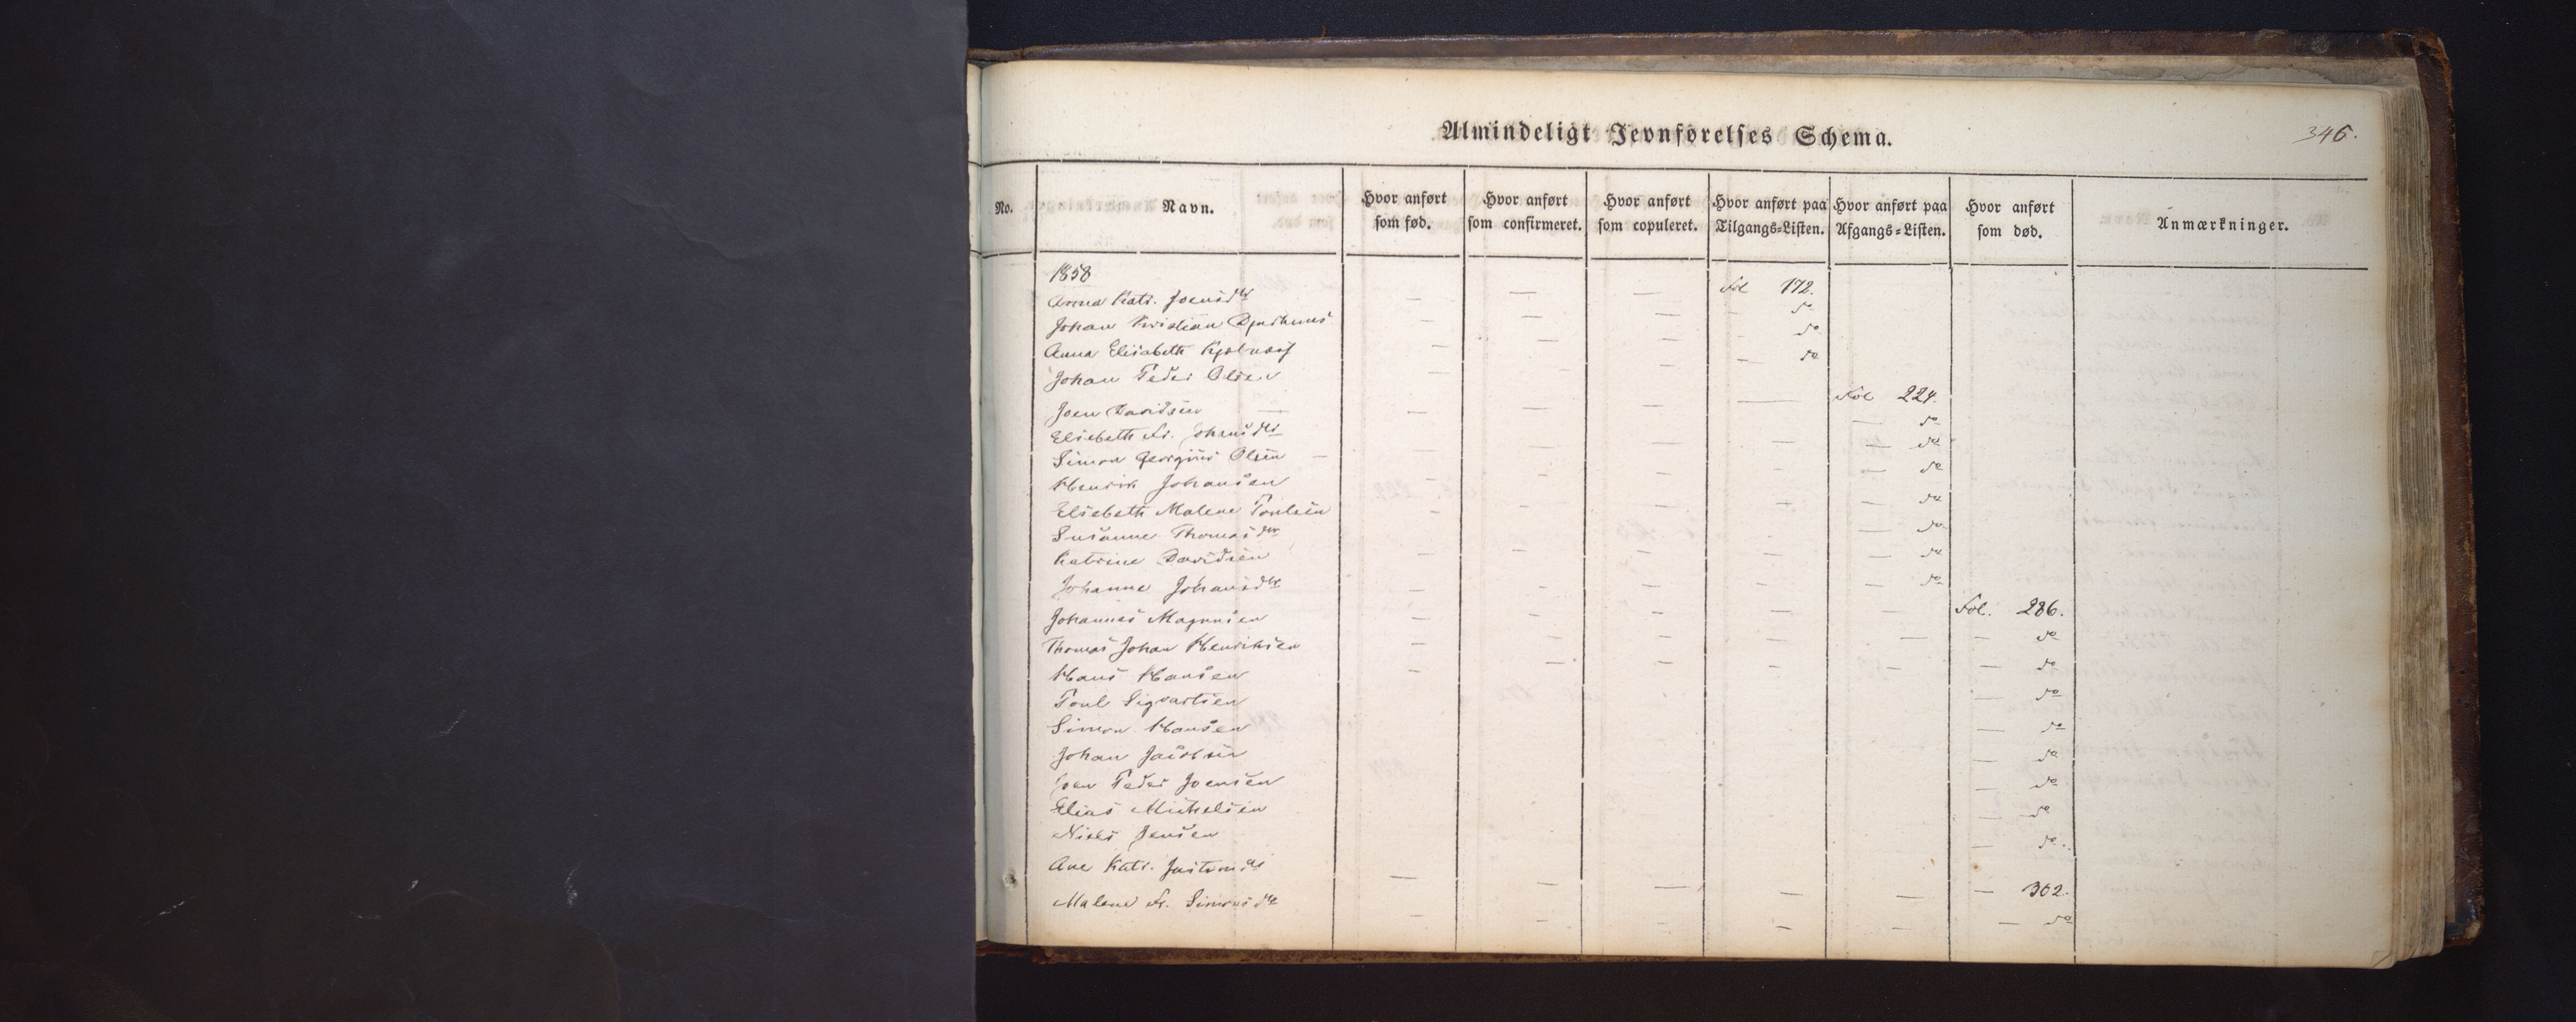 Almindeligt Jevnførelses Schema.
346.
No. Navn. Hvor anført som fød. Hvor anført som confirmeret. Hvor anført som copuleret. Hvor anført paa Tilgangs-Listen. Hvor anført paa Afgangs-Listen. Hvor anført som død. Anmærkninger.
1858
Anna Katr. Joensdtr — — — Fol 172.
Johan Kristian Djurhuus — — — — do
Anna Elisabeth — — — - do
Johan Peder Olsen — — — — do
Joen Davidsen — — — — — Fol 224.
Elisebeth Fr. Johansdtr — do
Simon Georgius Olsen — — — — — — do
Henrik Johansen — do
Elsebeth Malene Poulsen - — — - — do
Susanne Thomasdtr — do
Katrine Davidsen — — — — — do
Johanne Johansdtr — — — — — do
Johannes Magnusen — — — — — Fol. 286.
Thomas Johan Henriksen — — — — — — do
Hans Hansen — — — — — — do
Poul Sigvartsen — do
Simon Hansen — do
Johan Jacobsen — do
Joen Peder Joensen — do
Elias Michelsen — do
Niels Jensen — do.
Ane Katr. — — — — — — 302.
Malene Fr. Simonsdtr — — — - — — do